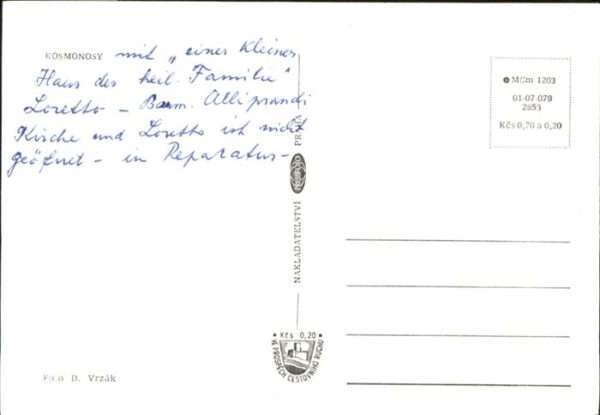 KOSMONOSY mit „eines kleines
Haus der heil. Familie"
Loretto – Baum. Alliprandi
Kirche und Loretto ist nicht
geöffnet – in Reparatur –
NAKLADATELSTVÍ
MCm 1203
01-07-079
2853
Kčs 0,70 a 0,20
Kčs 0,20
VE PROSPĚCH CESTOVNÍHO RUCHU
Foto D. Vrzák